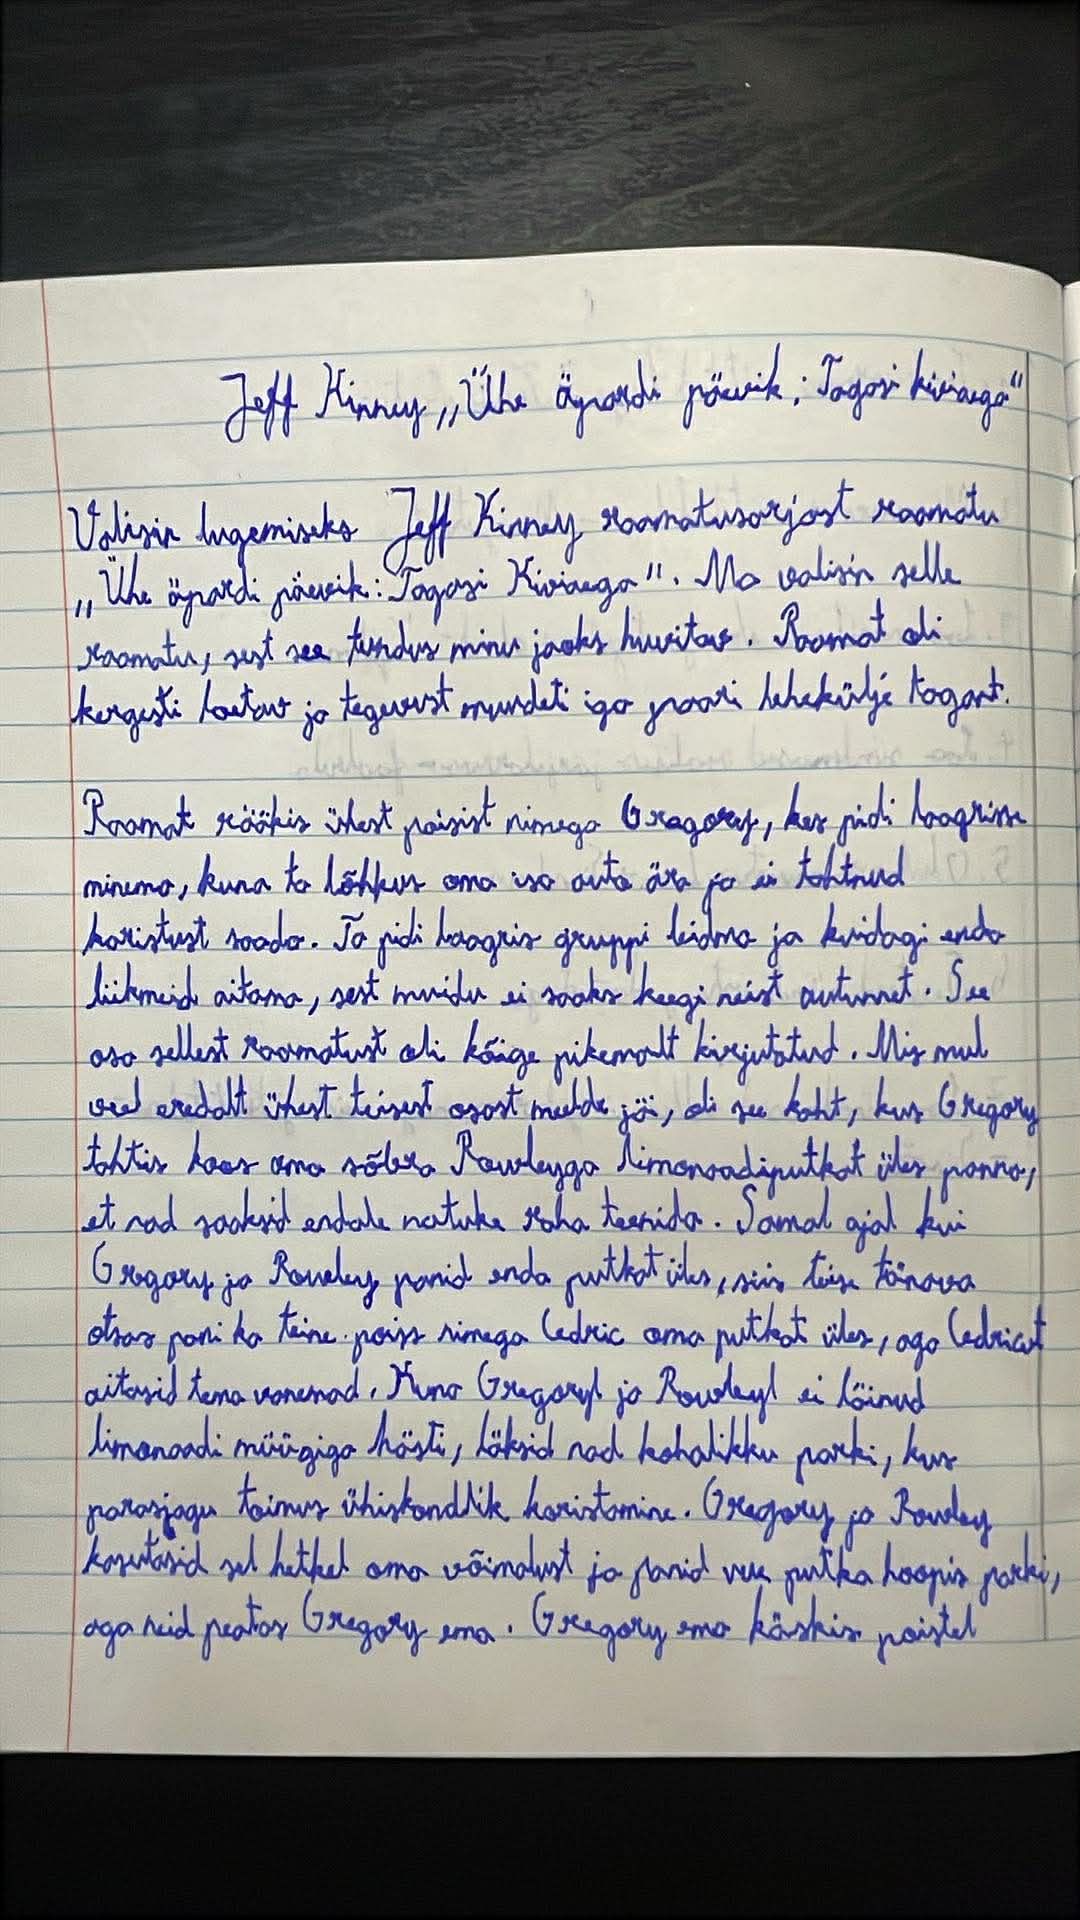 Jeff Kinney „Ühe äpardi päevik: Tagasi kiviaega"
Valisin lugemiseks Jeff Kinney raamatusarjast raamatu
„Ühe äpardi päevik: Tagasi Kiviaega". Ma valisin selle
raamatu, sest see tundus minu jaoks huvitav. Raamat oli
kergesti loetav ja tegevust muudeti iga paari lehekülje tagant.
Raamat rääkis ühest poisist nimega Gregory, kes pidi laagrisse
minema, kuna ta lõhkus oma isa auto ära ja ei tahtnud
karistust saada. Ta pidi laagris gruppi leidma ja kuidagi enda
liikmeid aitama, sest muidu ei saaks keegi neist autunnet. See
osa sellest raamatust oli kõige pikemalt kirjutatud. Mis mul
veel eredalt ühest teisest osast meelde jäi, oli see koht, kus Gregory
tahtis koos oma sõbra Rowleyga limonaadiputkat üles panna,
et nad saaksid endale natuke raha teenida. Samal ajal kui
Gregory ja Rowley panid enda putkat üles, siis teise tänava
otsas pani ka teine poiss nimega Cedric oma putkat üles, aga Cedricut
aitasid tema vanemad. Kuna Gregoryl ja Rowleyl ei läinud
limonaadi müügiga hästi, läksid nad kohalikku parki, kus
parasjagu toimus ühiskondlik koristamine. Gregory ja Rowley
kasutasid sel hetkel oma võimalust ja panid vee putka hoopis parki,
aga neid peatas Gregory ema. Gregory ema käskis poistel